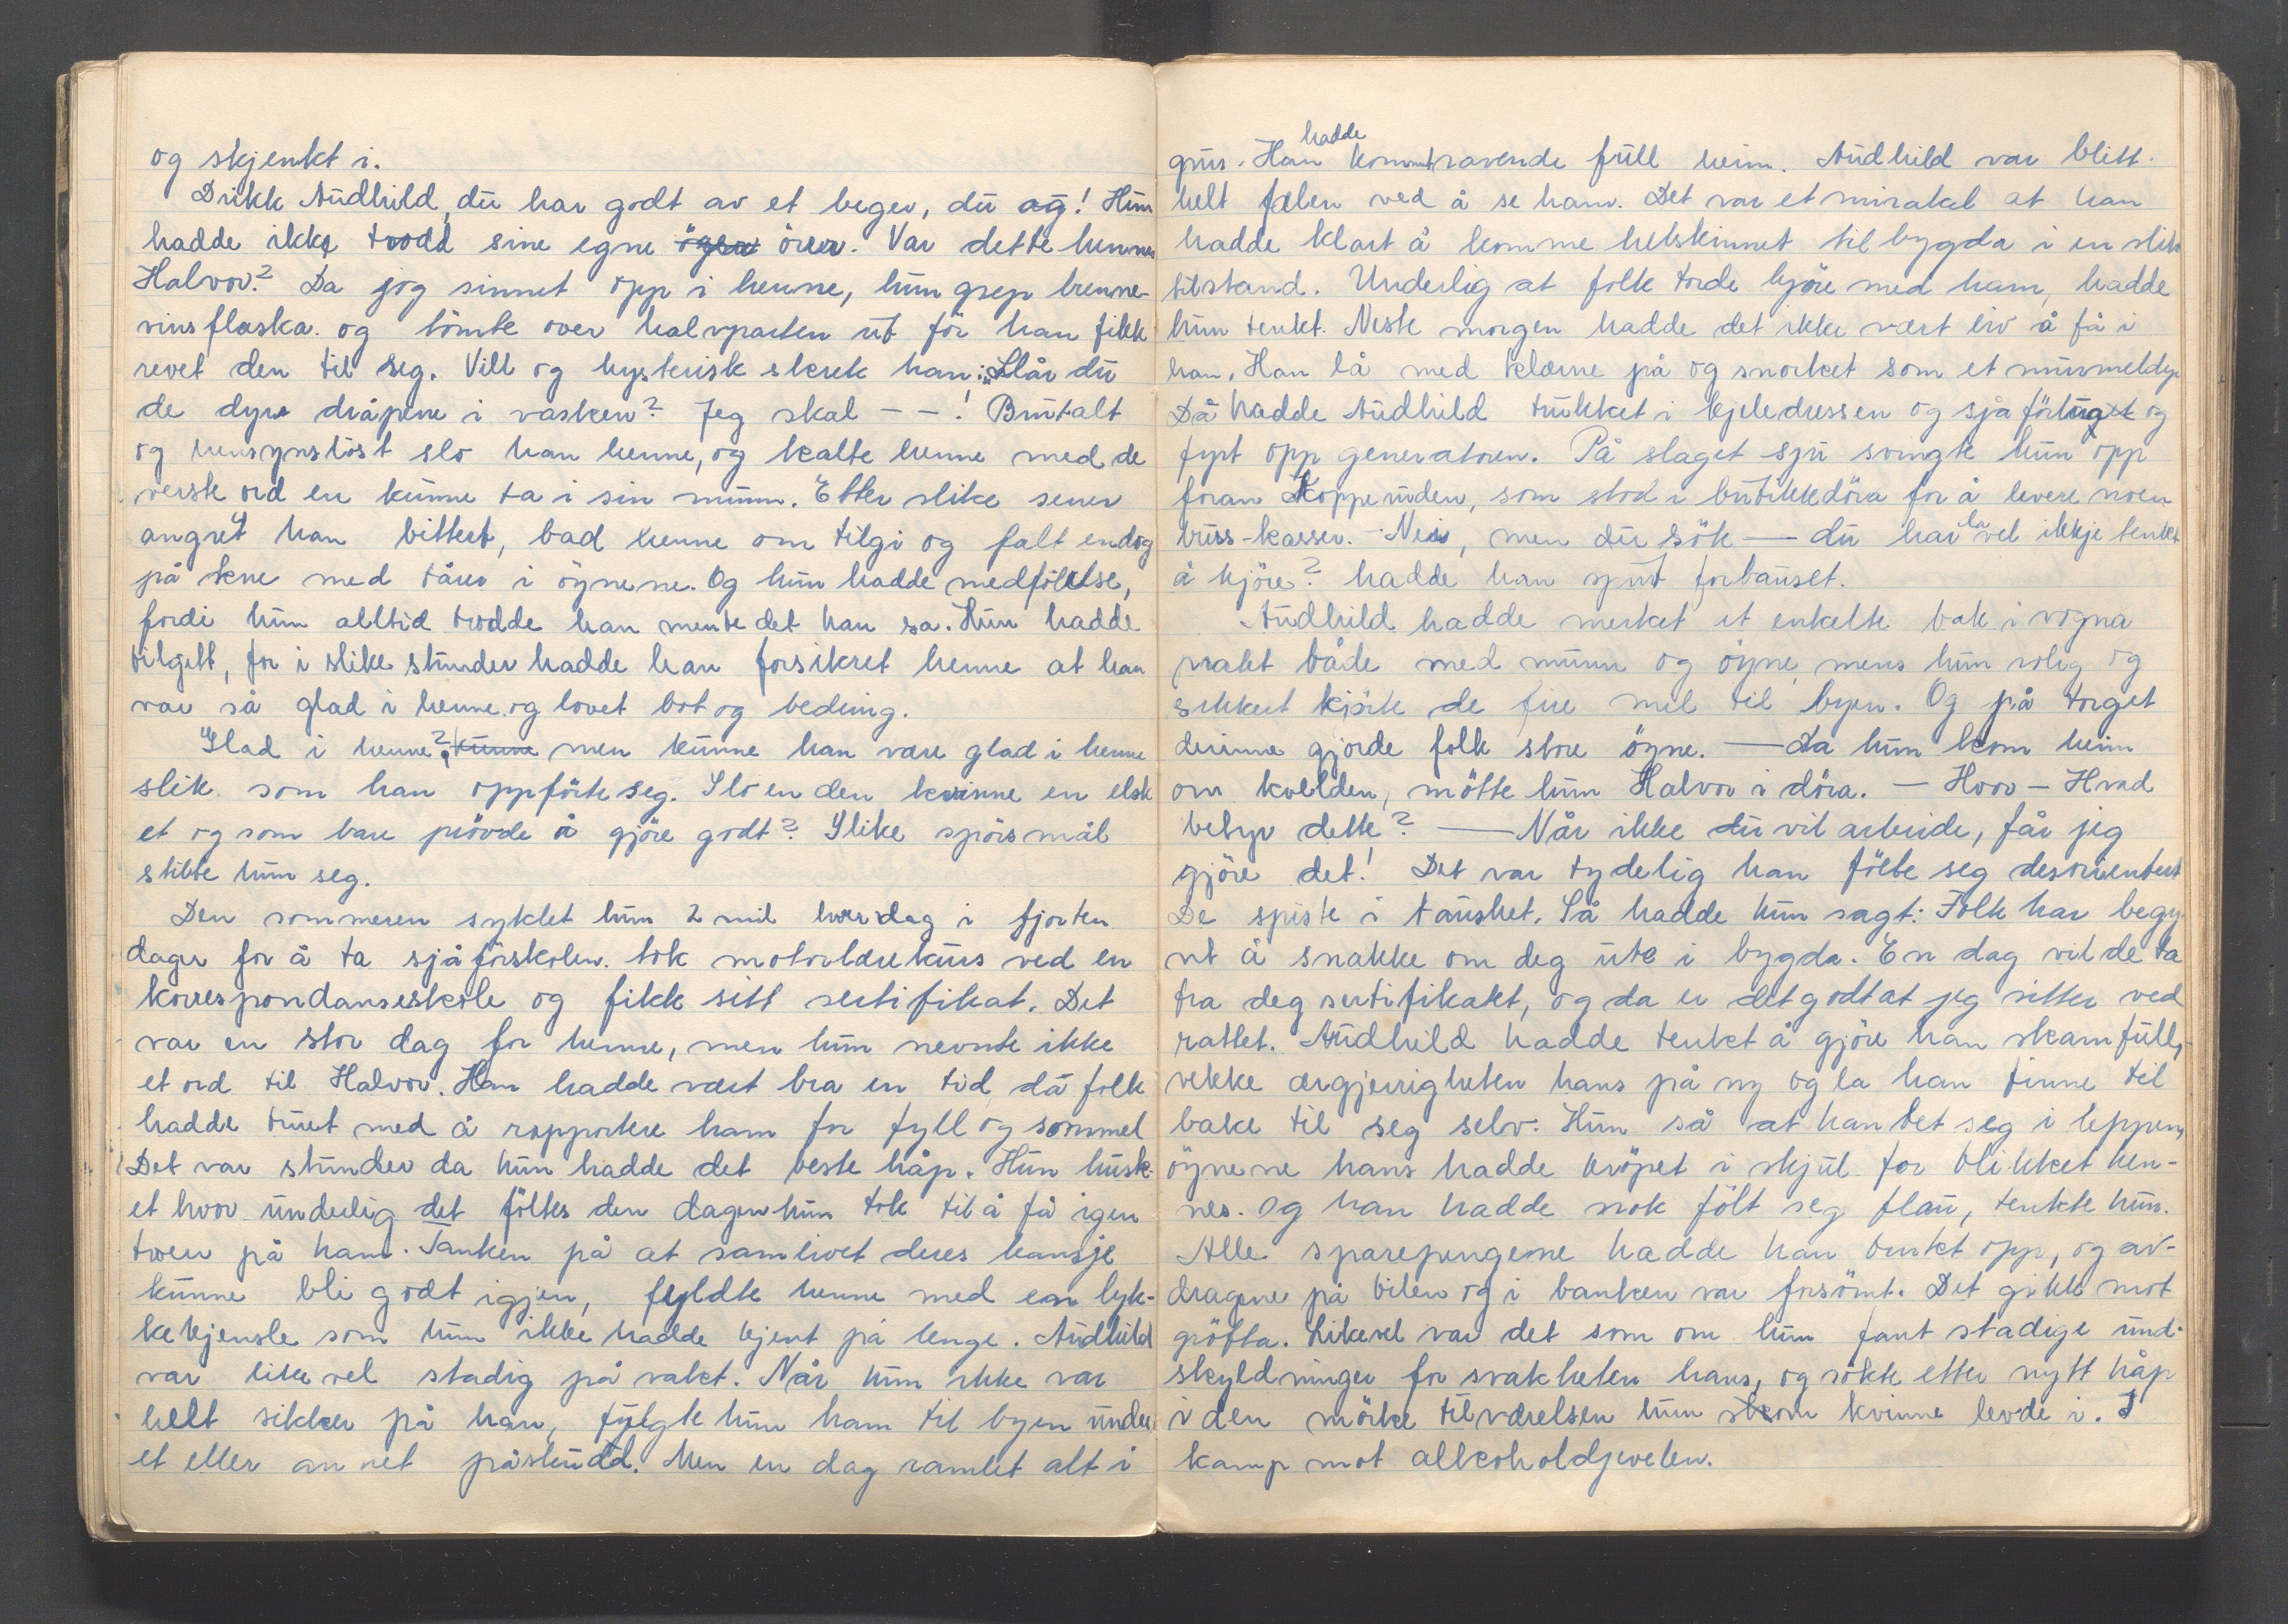 og skjenkt i.
Drikk Audhild, du har godt av et beger, du ag! Hun
hadde ikke trodd sine egne ögen örer. Var dette hennes
Halvor? Da jog sinnet opp i henne, hun grep brenne-
vinsflaska og tömte over halvparten ut för han fikk
revet den til seg. Vill og hysterisk skrek han: „Slår du
de dyre dråpene i vasken? Jeg skal - - ! Brutalt
og hensynslöst slo han henne, og kalte henne med de
verste ord en kunne ta i sin munn. Etter slike sener
angret han bittert, bad henne om tilgi og falt endog
på kne med tårer i öynene. Og hun hadde medfölelse,
fordi hun alltid trodde han mente det han sa. Hun hadde
tilgitt, for i slike stunder hadde han forsikret henne at han
var så glad i henne og lovet bot og bedring.
Glad i henne? kunne men kunne han være glad i henne
slik som han oppförte seg. Slo en den kvinne en elsk
et og som bare prövde å gjöre godt? Slike spörsmål
stilte hun seg.
Den sommeren syklet hun 2 mil hver dag i fjorten
dager for å ta sjåförskolen. tok motorlærekurs ved en
korrespondanseskole og fikk sitt sertifikat. Det
var en stor dag for henne, men hun nevnte ikke
et ord til Halvor. Han hadde vært bra en tid, då folk
hadde truet med å rapportere ham for fyll og sommel
Det var stunder da hun hadde det beste håp. Hun husk-
et hvor underlig det föltes den dagen hun tok til å få igen
troen på ham. Tanken på at samlivet deres kansje
kunne bli godt igjen, fyldte henne med en lyk-
kekjensle som hun ikke hadde kjent på lenge. Audhild
var likevel stadig på vakt. Når hun ikke var
helt sikker på han, fylgte hun ham til byen under
et eller annet påskudd. Men en dag ramlet alt i
grus. Han hadde kommt ravende full heim. Audhild var blitt
helt fælen ved å se ham. Det var et mirakel at han
hadde klart å komme helskinnet til bygda i en slik
tilstand. Underlig at folk torde kjöre med ham, hadde
hun tenkt. Neste morgen hadde det ikke vært liv å få i
han. Han lå med klærne på og snorket som et murmeldyr
Då hadde Audhild trukket i kjeledressen og sjåförtuget og
fyrt opp generatoren. På slaget sju svingte hun opp
foran Kopperuden, som stod i butikkdöra for å levere noen
bruss-kasser. - Nei, men du sök — du har la vel ikkje tenkt
å kjöre? hadde han spurt forbauset.
Audhild hadde merket at enkelte bak i vogna
pratet både med munn og öyne, mens hun rolig og
sikkert kjörte de fire mil til byen. Og på torget
derinne gjorde folk store öyne. — Da hun kom heim
om kvelden, mötte hun Halvor i döra. — Hvor - Hvad
betyr dette? — Når ikke du vil arbeide, får jeg
gjöre det! Det var tydelig han fölte seg desorientert
De spiste i taushet. Så hadde hun sagt: Folk har begy
nt å snakke om deg ute i bygda. En dag vil de ta
fra deg sertifikatet, og da er det godt at jeg sitter ved
rattet. Audhild hadde tenkt å gjöre han skamfull,
vekke ærgjerrigheten hans på ny og la han finne til
bake til seg selv. Hun så at han bet seg i leppen,
öynene hans hadde kröpet i skjul for blikket hen-
nes. Og han hadde nok fölt seg flau, tenkte hun.
Alle sparepengene hadde han drukket opp, og av-
dragene på bilen og i banken var forsömt. Det gikk mot
gröfta. Likevel var det som om hun fant stadige und-
skyldninger for svakheten hans, og sökte etter nytt håp
i den mörke tilværelsen hun som kvinne levde i. I
kamp mot alkoholdjevelen.